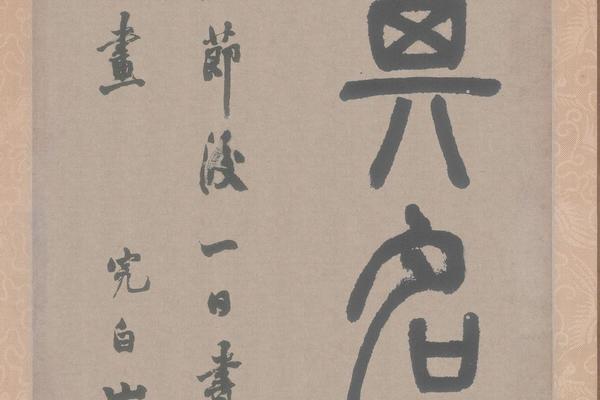 其名
節後一日書
畫 完白山